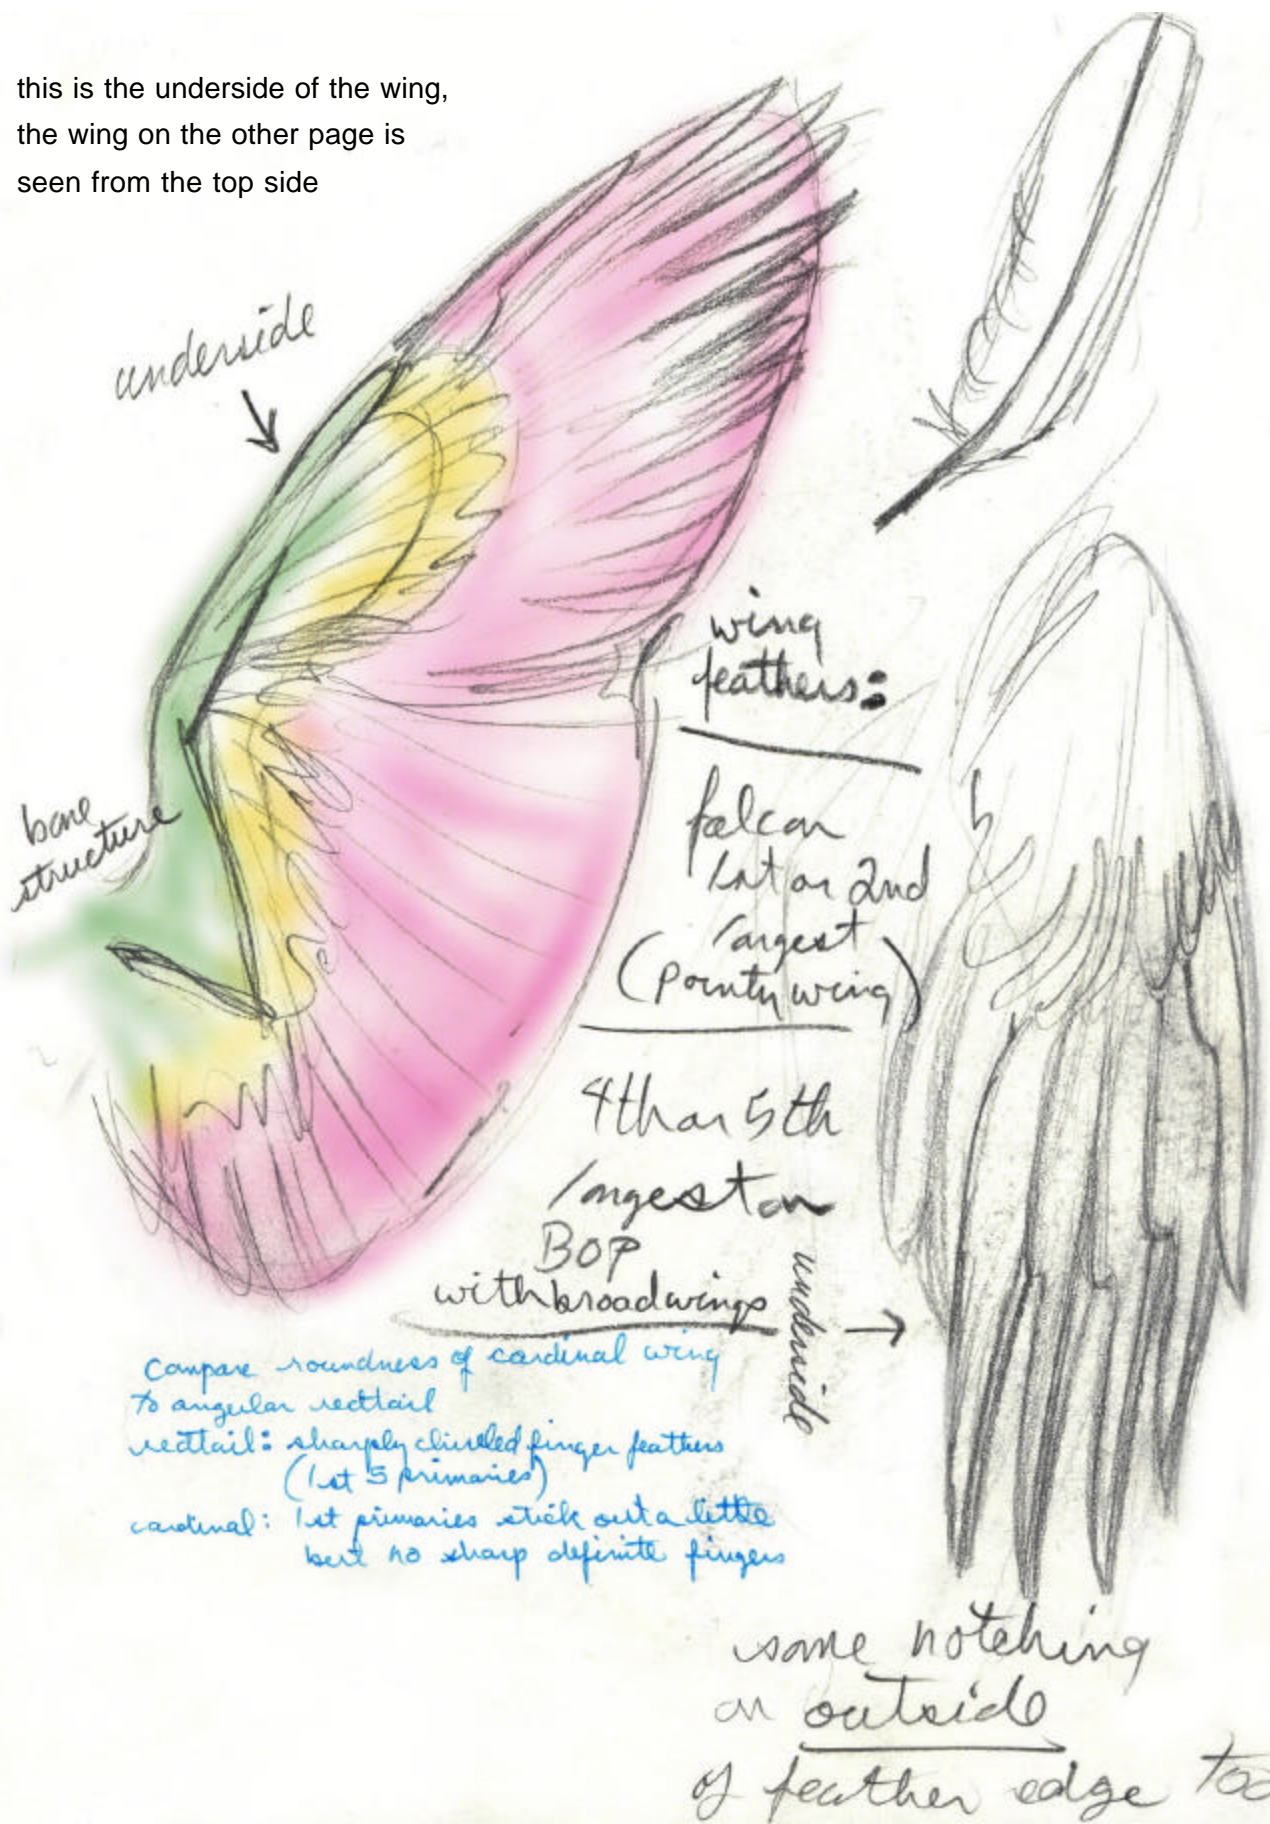 this is the underside of the wing,
the wing on the other page is
seen from the top side
underside
bone
structure
wing
feathers:
falcon
1st or 2nd
largest
(pointy wing)
4th or 5th
largest on
BOP
with broad wings
underside
compare roundness of cardinal wing
to angular redtail
redtail: sharply chiseled finger feathers
(1st 5 primaries)
cardinal: 1st primaries stick out a little
but no sharp definite fingers
some notching
on outside
of feather edge too